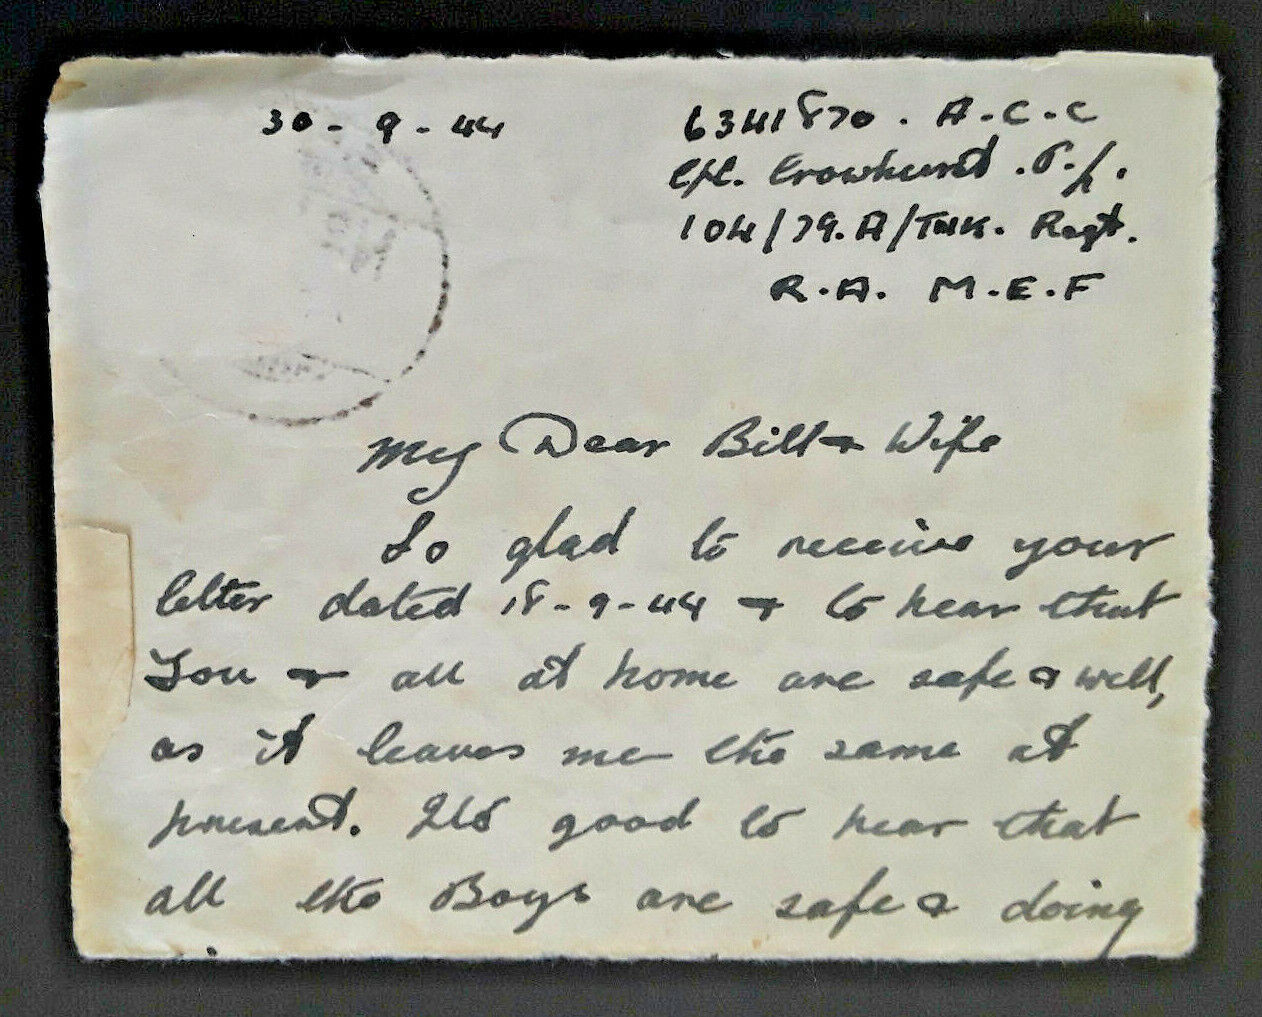 30-9-44
6341870. A.C.C
Cpl. Crowhurst. P.J.
104/79.A/Tnk. Regt.
R.A. M.E.F
My Dear Bill & Wife
So glad to receive your
letter dated 18-9-44 & to hear that
You & all at home are safe & well,
as it leaves me the same at
present. Its good to hear that
all the Boys are safe & doing